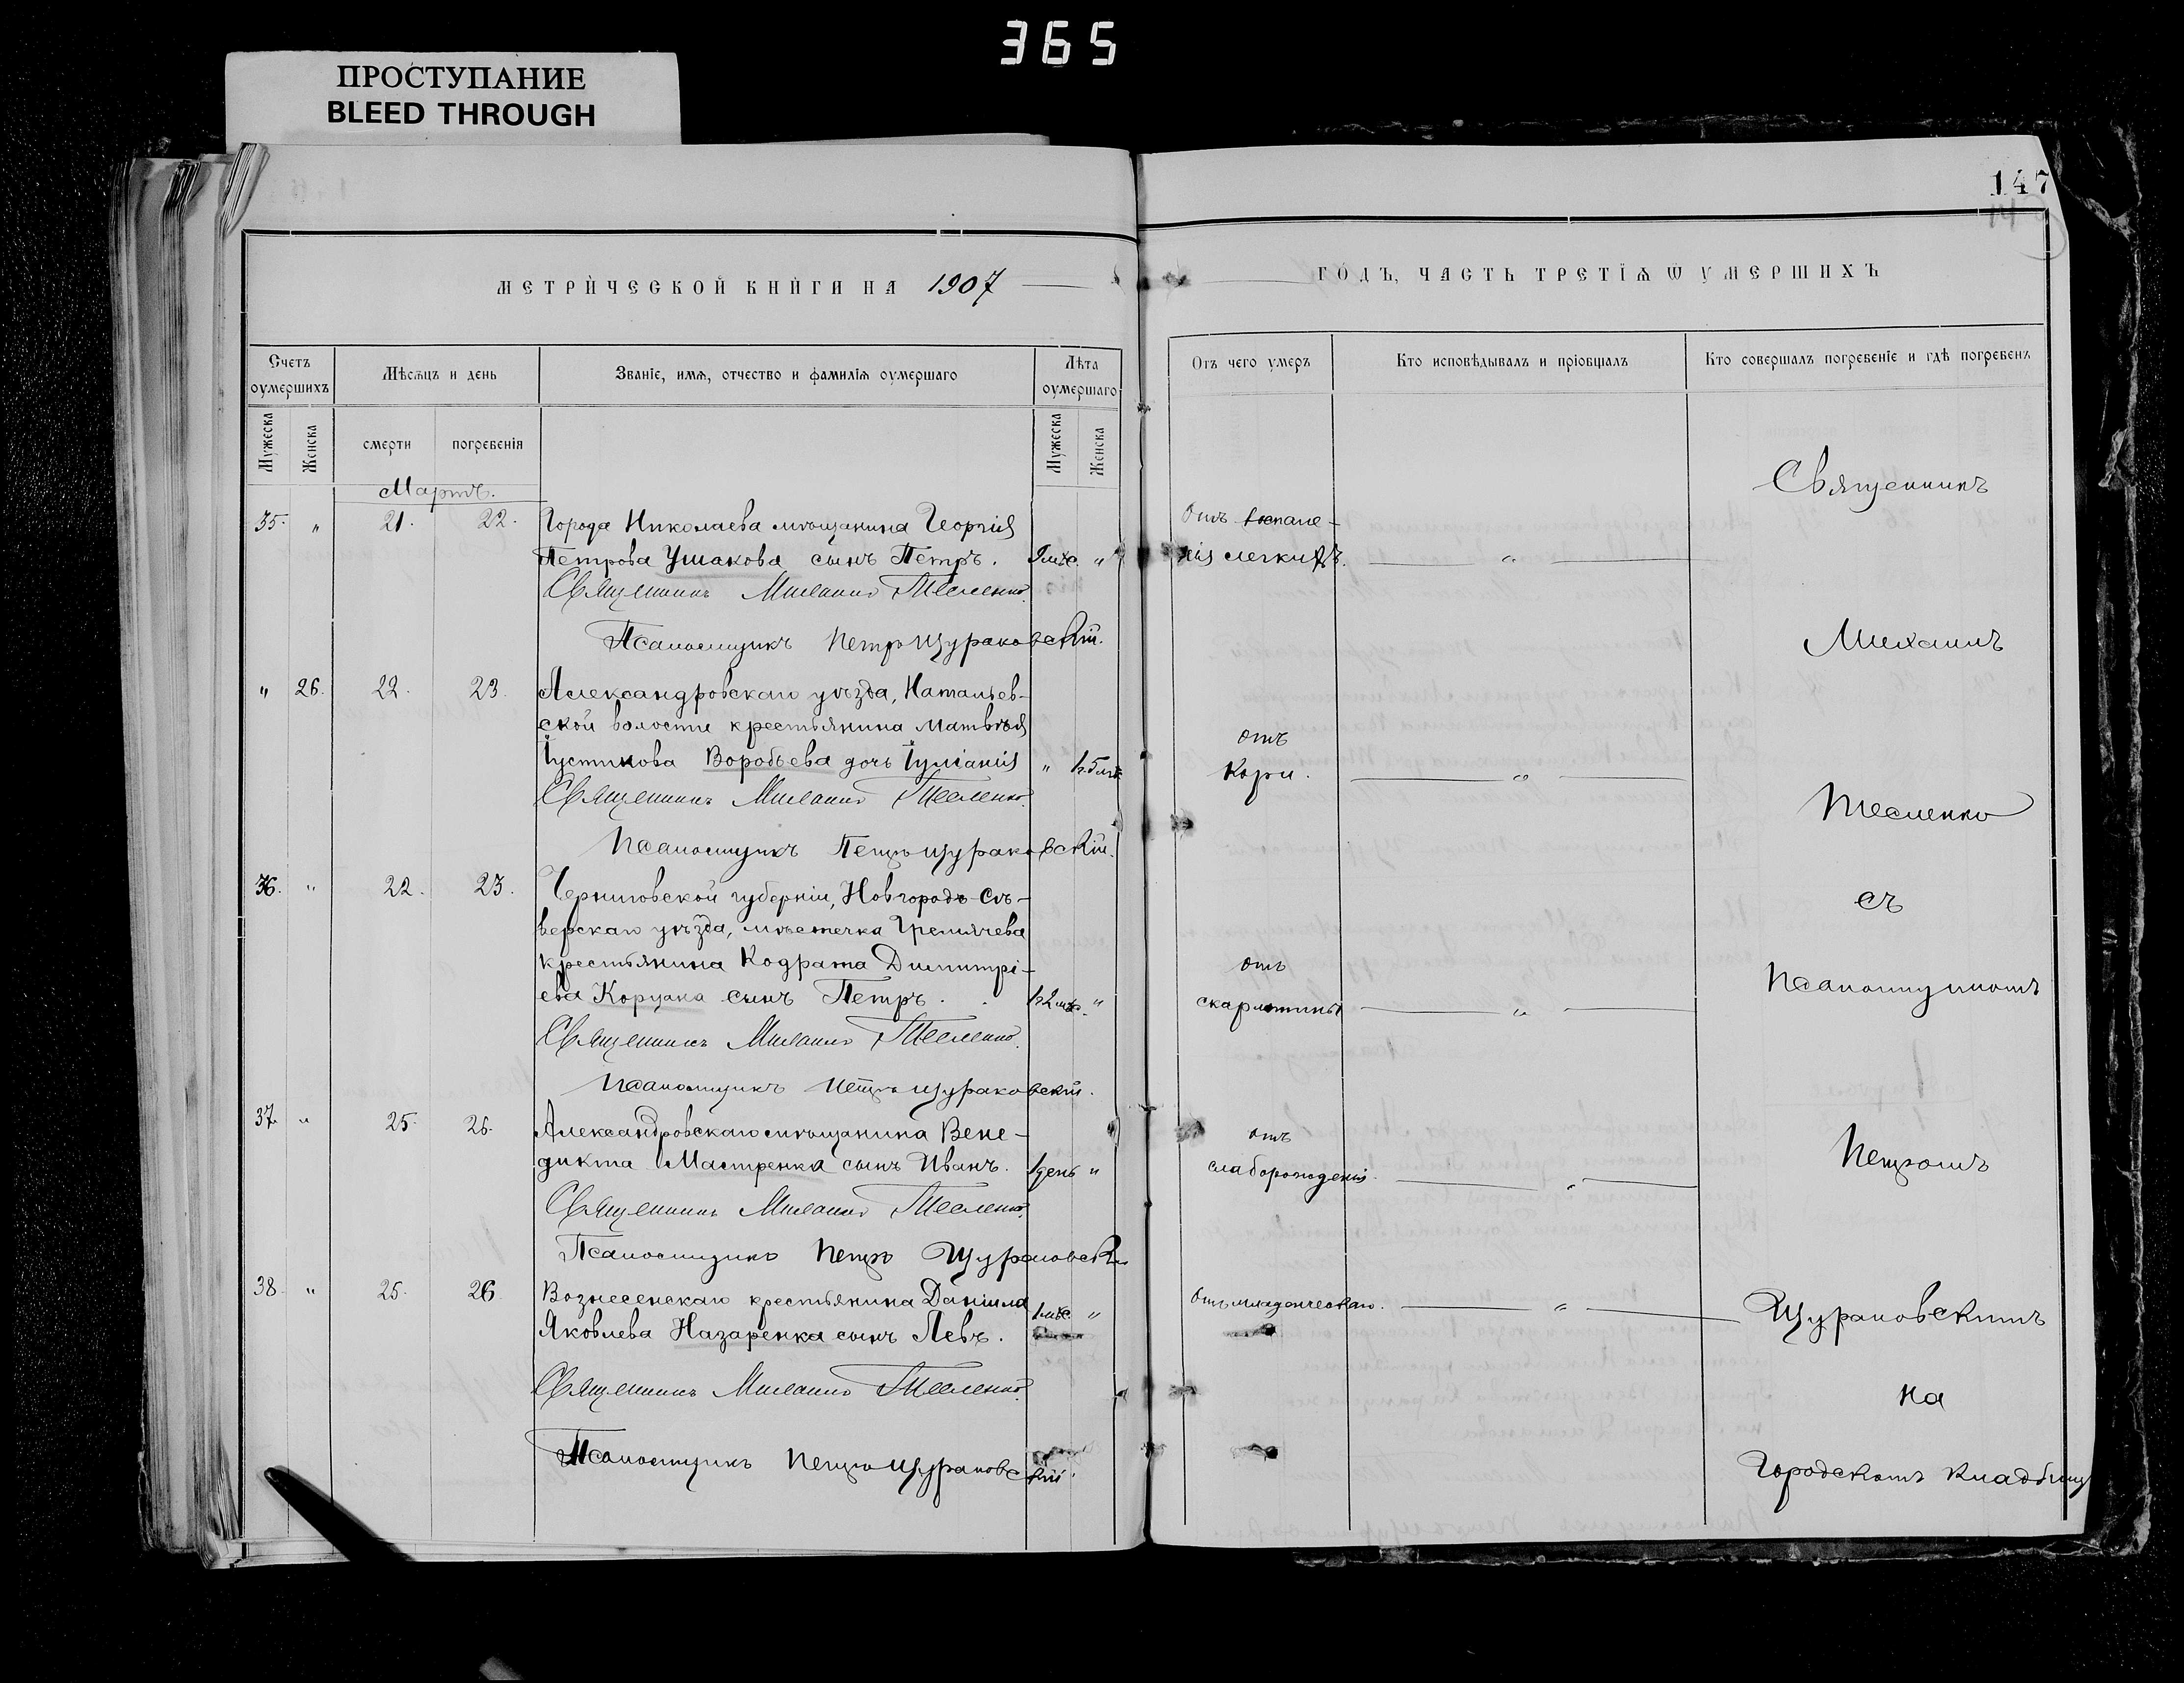 365
ПРОСТУПАНИЕ
BLEED THROUGH
147
МЕТРИЧЕСКОЙ КНИГИ НА 1907
ГОДЪ, ЧАСТЬ ТРЕТІЯ Ѿ УМЕРШИХЪ
Счетъ оумершихъ
Мѣсяцъ и день
Званіе, имя, отчество и фамилія оумершаго
Лѣта оумершаго
Отъ чего умеръ
Кто исповѣдывалъ и пріобщалъ
Кто совершалъ погребеніе и гдѣ погребенъ
Мужеска
Женска
смерти
погребенія
Мужеска
Женска
Мартъ.
35. " 21. 22. Города Николаева мѣщанина Георгія
Петрова Ушакова сынъ Петръ. 9 мѣс. "
Отъ воспале-
нія легкихъ. "
Священникъ Михаилъ Тесленко.
Псаломщикъ Петръ Щураковскій.
" 26. 22. 23. Александровскаго уѣзда, Натальев-
ской волости крестьянина Матвѣя
Іустинова Воробьева дочь Іуліанія " 1г. 5 мѣс.
отъ
Кори. "
Священникъ Михаилъ Тесленко.
Псаломщикъ Петръ Щураковскій.
36. " 22. 23. Черниговской губерніи, Новгородъ-Сѣ-
верскаго уѣзда, мѣстечка Гремячева
крестьянина Кодрата Димитрі-
ева Коруана сынъ Петръ. 1г. 2 мѣс. "
отъ
скарлатины "
Священникъ Михаилъ Тесленко.
Псаломщикъ Петръ Щураковскій.
37. " 25. 26. Александровскаго мѣщанина Вене-
дикта Мастренка сынъ Иванъ. 1 день "
отъ
слаборожденія. "
Священникъ Михаилъ Тесленко.
Псаломщикъ Петръ Щураковскій
38. " 25. 26 Вознесенскаго крестьянина Даніила
Яковлева Назаренка сынъ Левъ. 1 мѣс. "
Отъ младенческаго. "
Священникъ Михаилъ Тесленко.
Псаломщикъ Петръ Щураковскій
Священникъ
Михаилъ
Тесленко
съ
Псаломщикомъ
Петромъ
Щураковскимъ
на
Городскомъ кладбищѣ